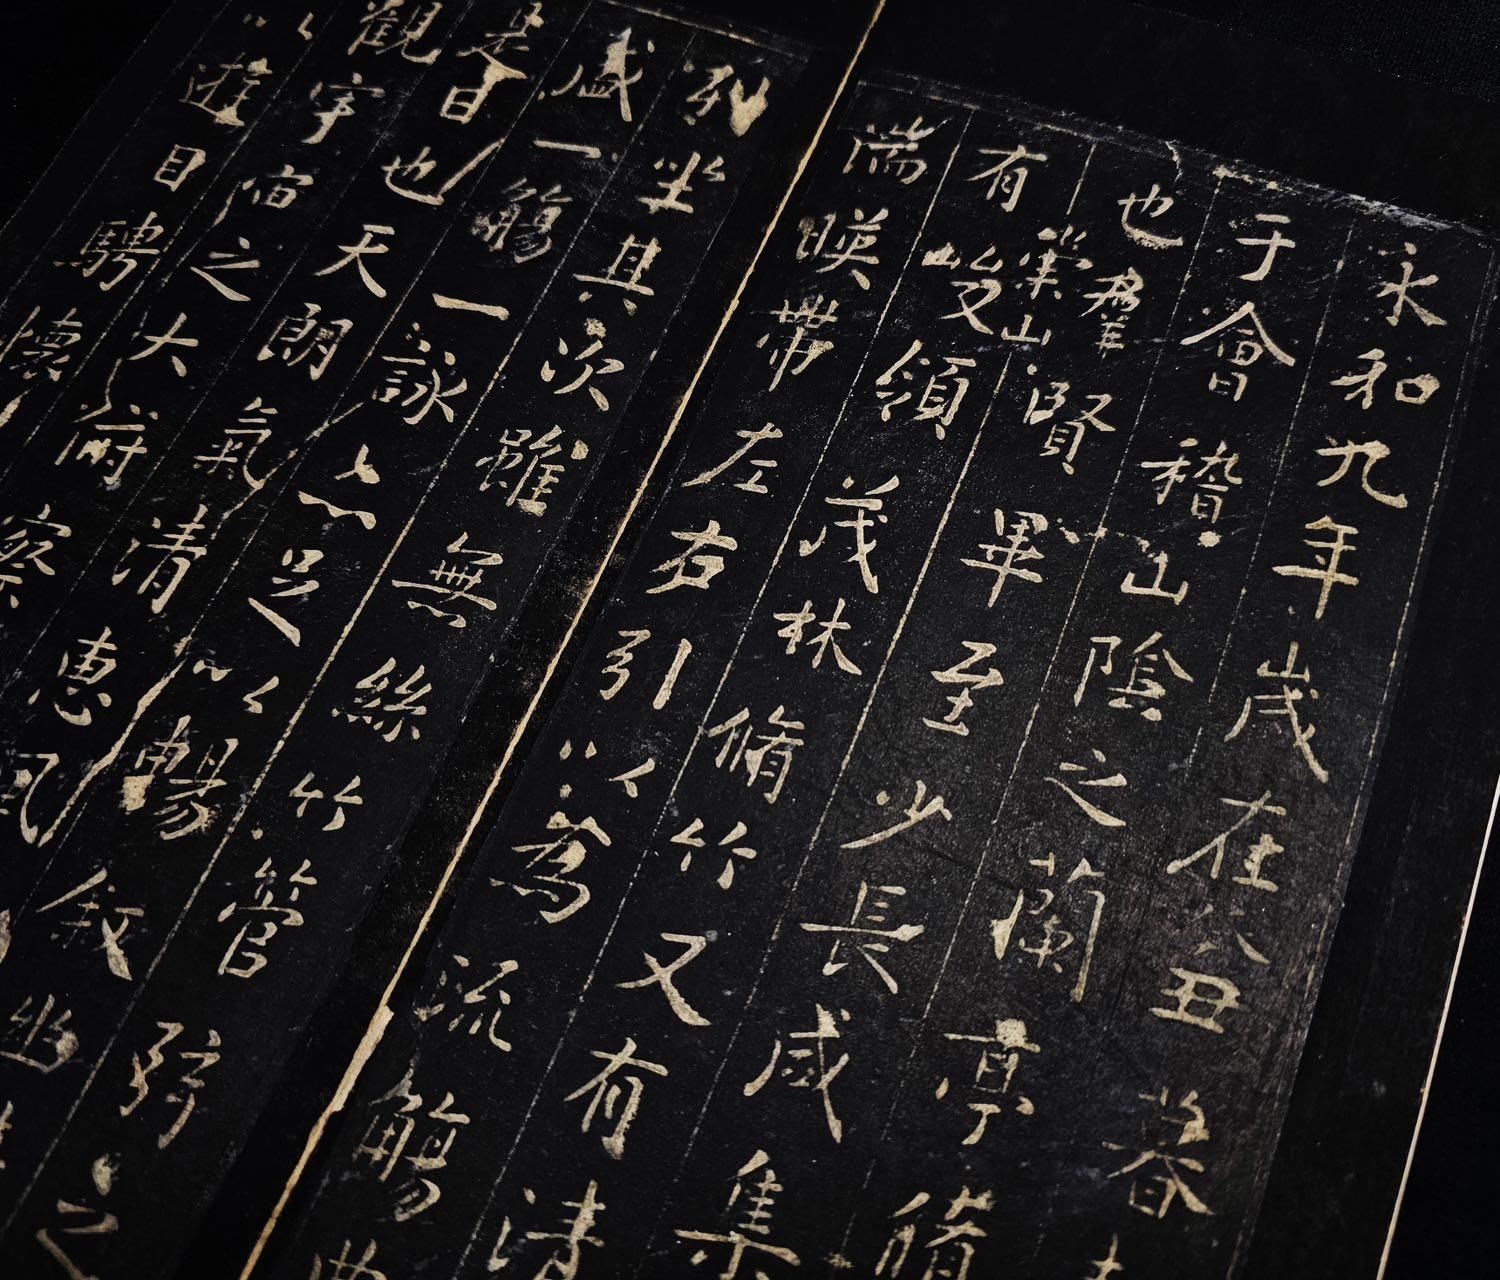 永和九年歲在癸丑暮
于會稽山陰之蘭亭脩
也羣賢畢至少長咸集
有崇山峻領茂林脩竹又有清
湍暎帶左右引以為流觴曲
列坐其次雖無絲竹管弦之
盛一觴一詠亦足以暢敘幽
是日也天朗氣清惠風
觀宇宙之大俯察
以遊目騁懷